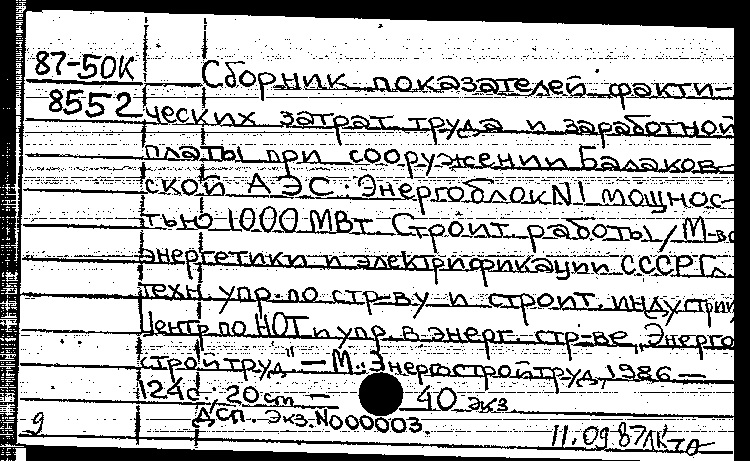 87-50К
8552
Сборник показателей факти-
ческих затрат труда и заработной
платы при сооружении Балаков-
ской АЭС: Энергоблок N1 мощнос-
тью 1000 МВт. Строит. работы / М-во
энергетики и электрификации СССР Гл.
техн. упр. по стр-ву и строит. индустрии
Центр по НОТ и упр. в энерг. стр-ве „Энерго
стройтруд" — М.: Энергостройтруд, 1986 —
124 с.; 20 cm — 40 экз.
ДСП. Экз. N000003.
9
11.09.87